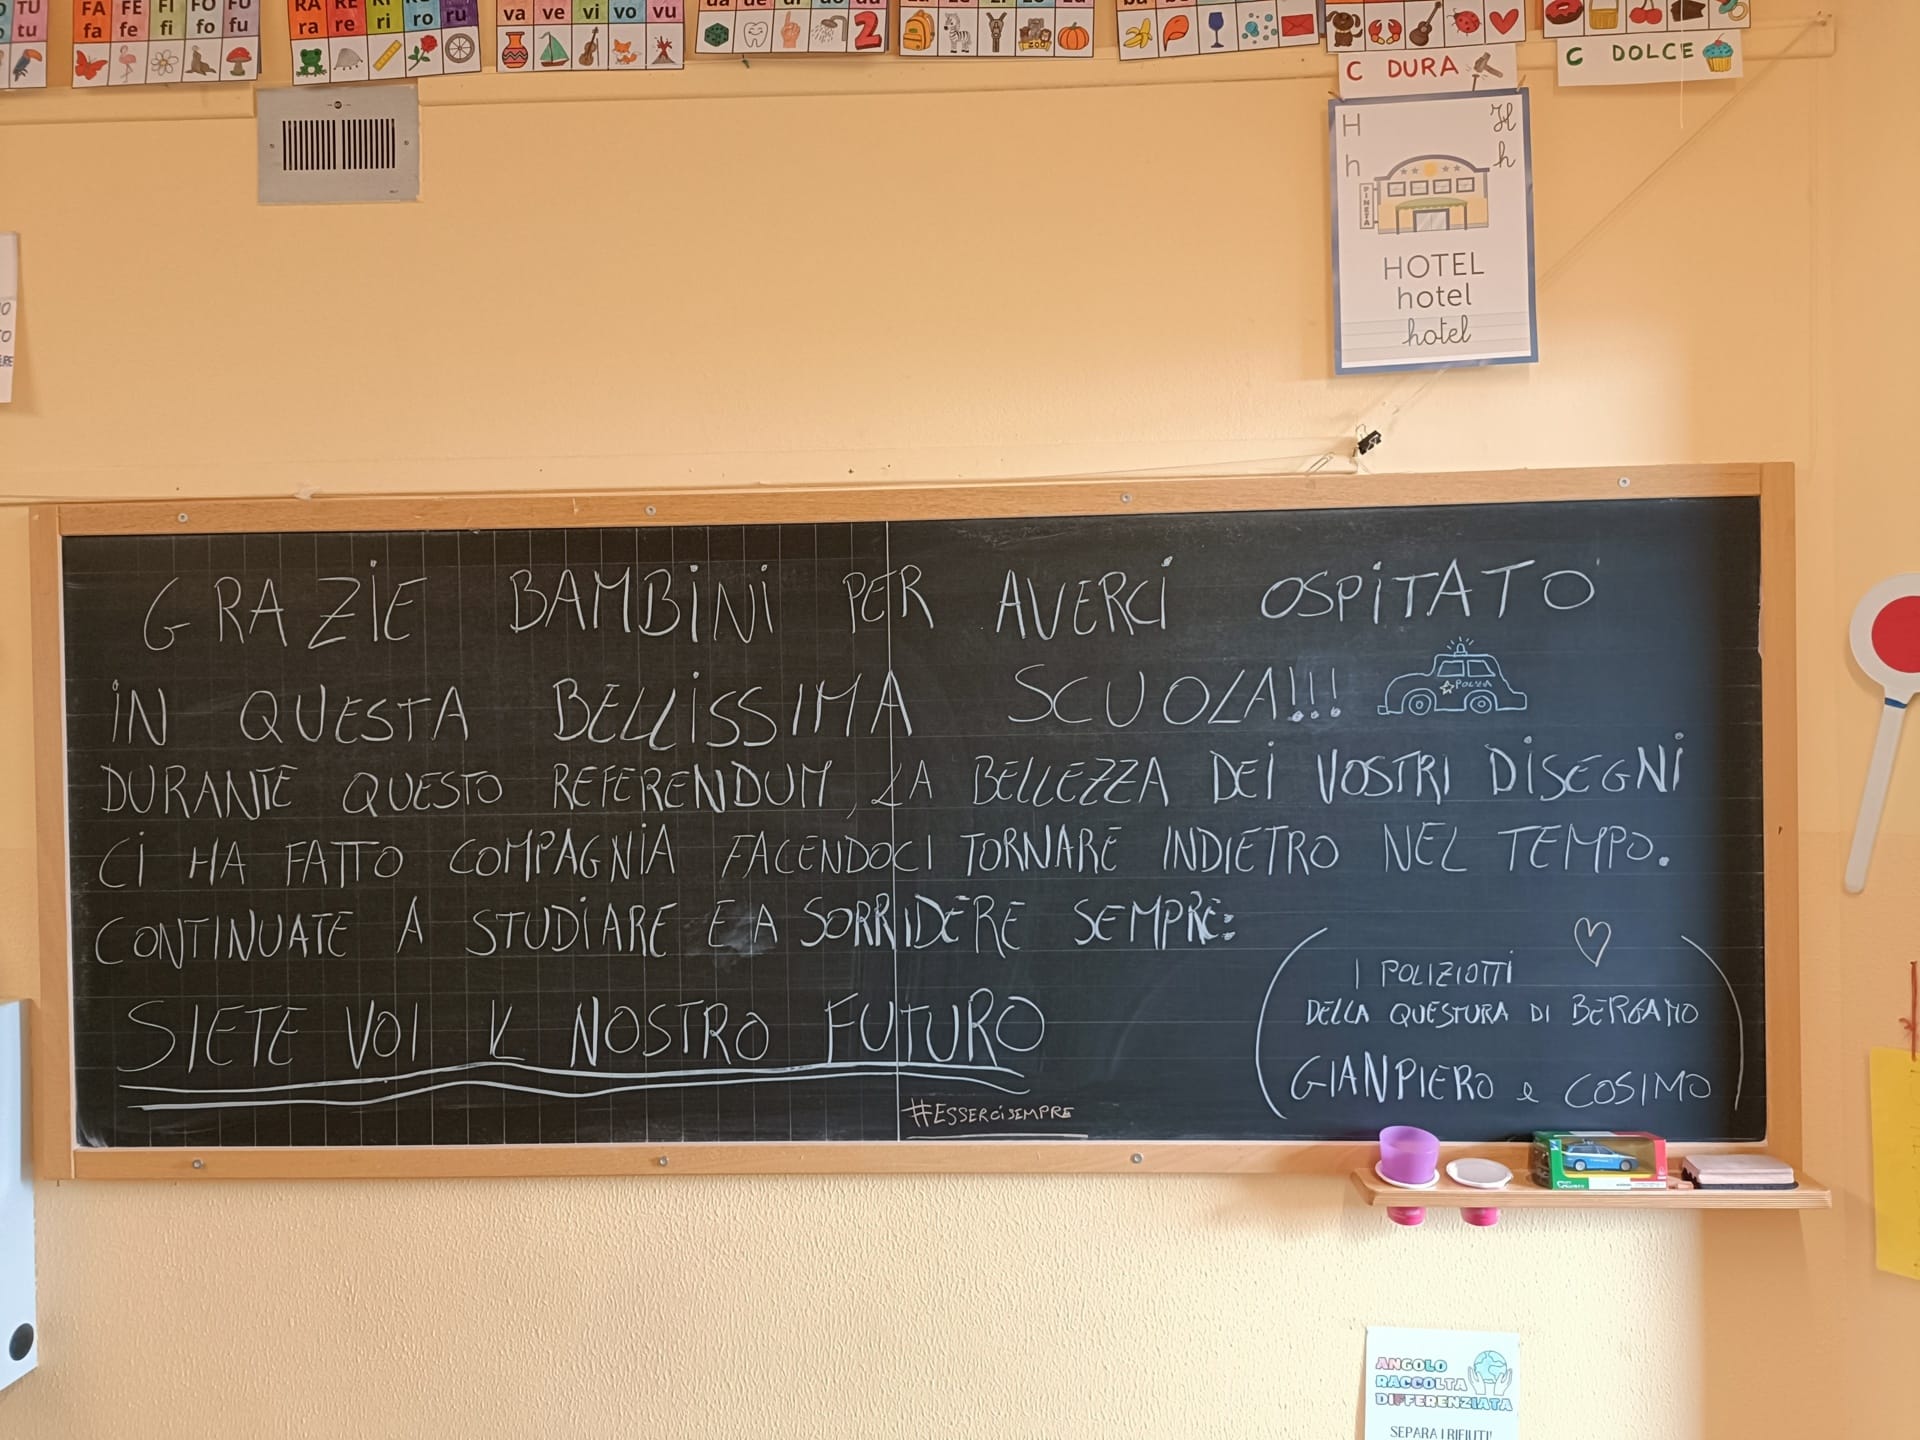 TU
tu
FA FE FI FO FU
fa fe fi fo fu
RA RE RI RO RU
ra re ri ro ru
va ve vi vo vu
2
ZOO
C DURA
C DOLCE
H H
h h
PINETA
HOTEL
hotel
hotel
GRAZIE BAMBINI PER AVERCI OSPITATO
IN QUESTA BELLISSIMA SCUOLA!!!
POLIZIA
DURANTE QUESTO REFERENDUM, LA BELLEZZA DEI VOSTRI DISEGNI
CI HA FATTO COMPAGNIA FACENDOCI TORNARE INDIETRO NEL TEMPO.
CONTINUATE A STUDIARE E A SORRIDERE SEMPRE:
SIETE VOI IL NOSTRO FUTURO
#ESSERCISEMPRE
I POLIZIOTTI
DELLA QUESTURA DI BERGAMO
GIANPIERO e COSIMO
ANGOLO
RACCOLTA
DIFFERENZIATA
SEPARA I RIFIUTI!